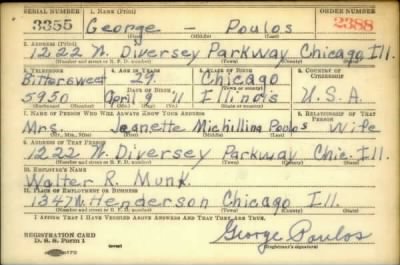 SERIAL NUMBER 1. NAME (Print) ORDER NUMBER
3355 George - Poulos 2388
(First) (Middle) (Last)
2. ADDRESS (Print)
1222 W. Diversey Parkway Chicago Ill.
(Number and street or R. F. D. number) (Town) (County) (State)
3. TELEPHONE 4. AGE IN YEARS 5. PLACE OF BIRTH 6. COUNTRY OF CITIZENSHIP
Bittersweet 29 Chicago
DATE OF BIRTH (Town or county)
5950 April 9 11 Illinois U.S.A.
(Mo.) (Day) (Yr.) (State or country)
7. NAME OF PERSON WHO WILL ALWAYS KNOW YOUR ADDRESS 8. RELATIONSHIP OF THAT PERSON
Mrs. Jeanette Michillina Poulos Wife
(Mr., Mrs., Miss) (First) (Middle) (Last)
9. ADDRESS OF THAT PERSON
1222 W. Diversey Parkway Chic. Ill.
(Number and street or R. F. D. number) (Town) (County) (State)
10. EMPLOYER'S NAME
Walter R. Munk.
11. PLACE OF EMPLOYMENT OR BUSINESS
1347 W. Henderson Chicago Ill.
(Number and street or R. F. D. number) (Town) (County) (State)
I AFFIRM THAT I HAVE VERIFIED ABOVE ANSWERS AND THAT THEY ARE TRUE.
REGISTRATION CARD
D. S. S. Form 1 George Poulos
(Registrant's signature)